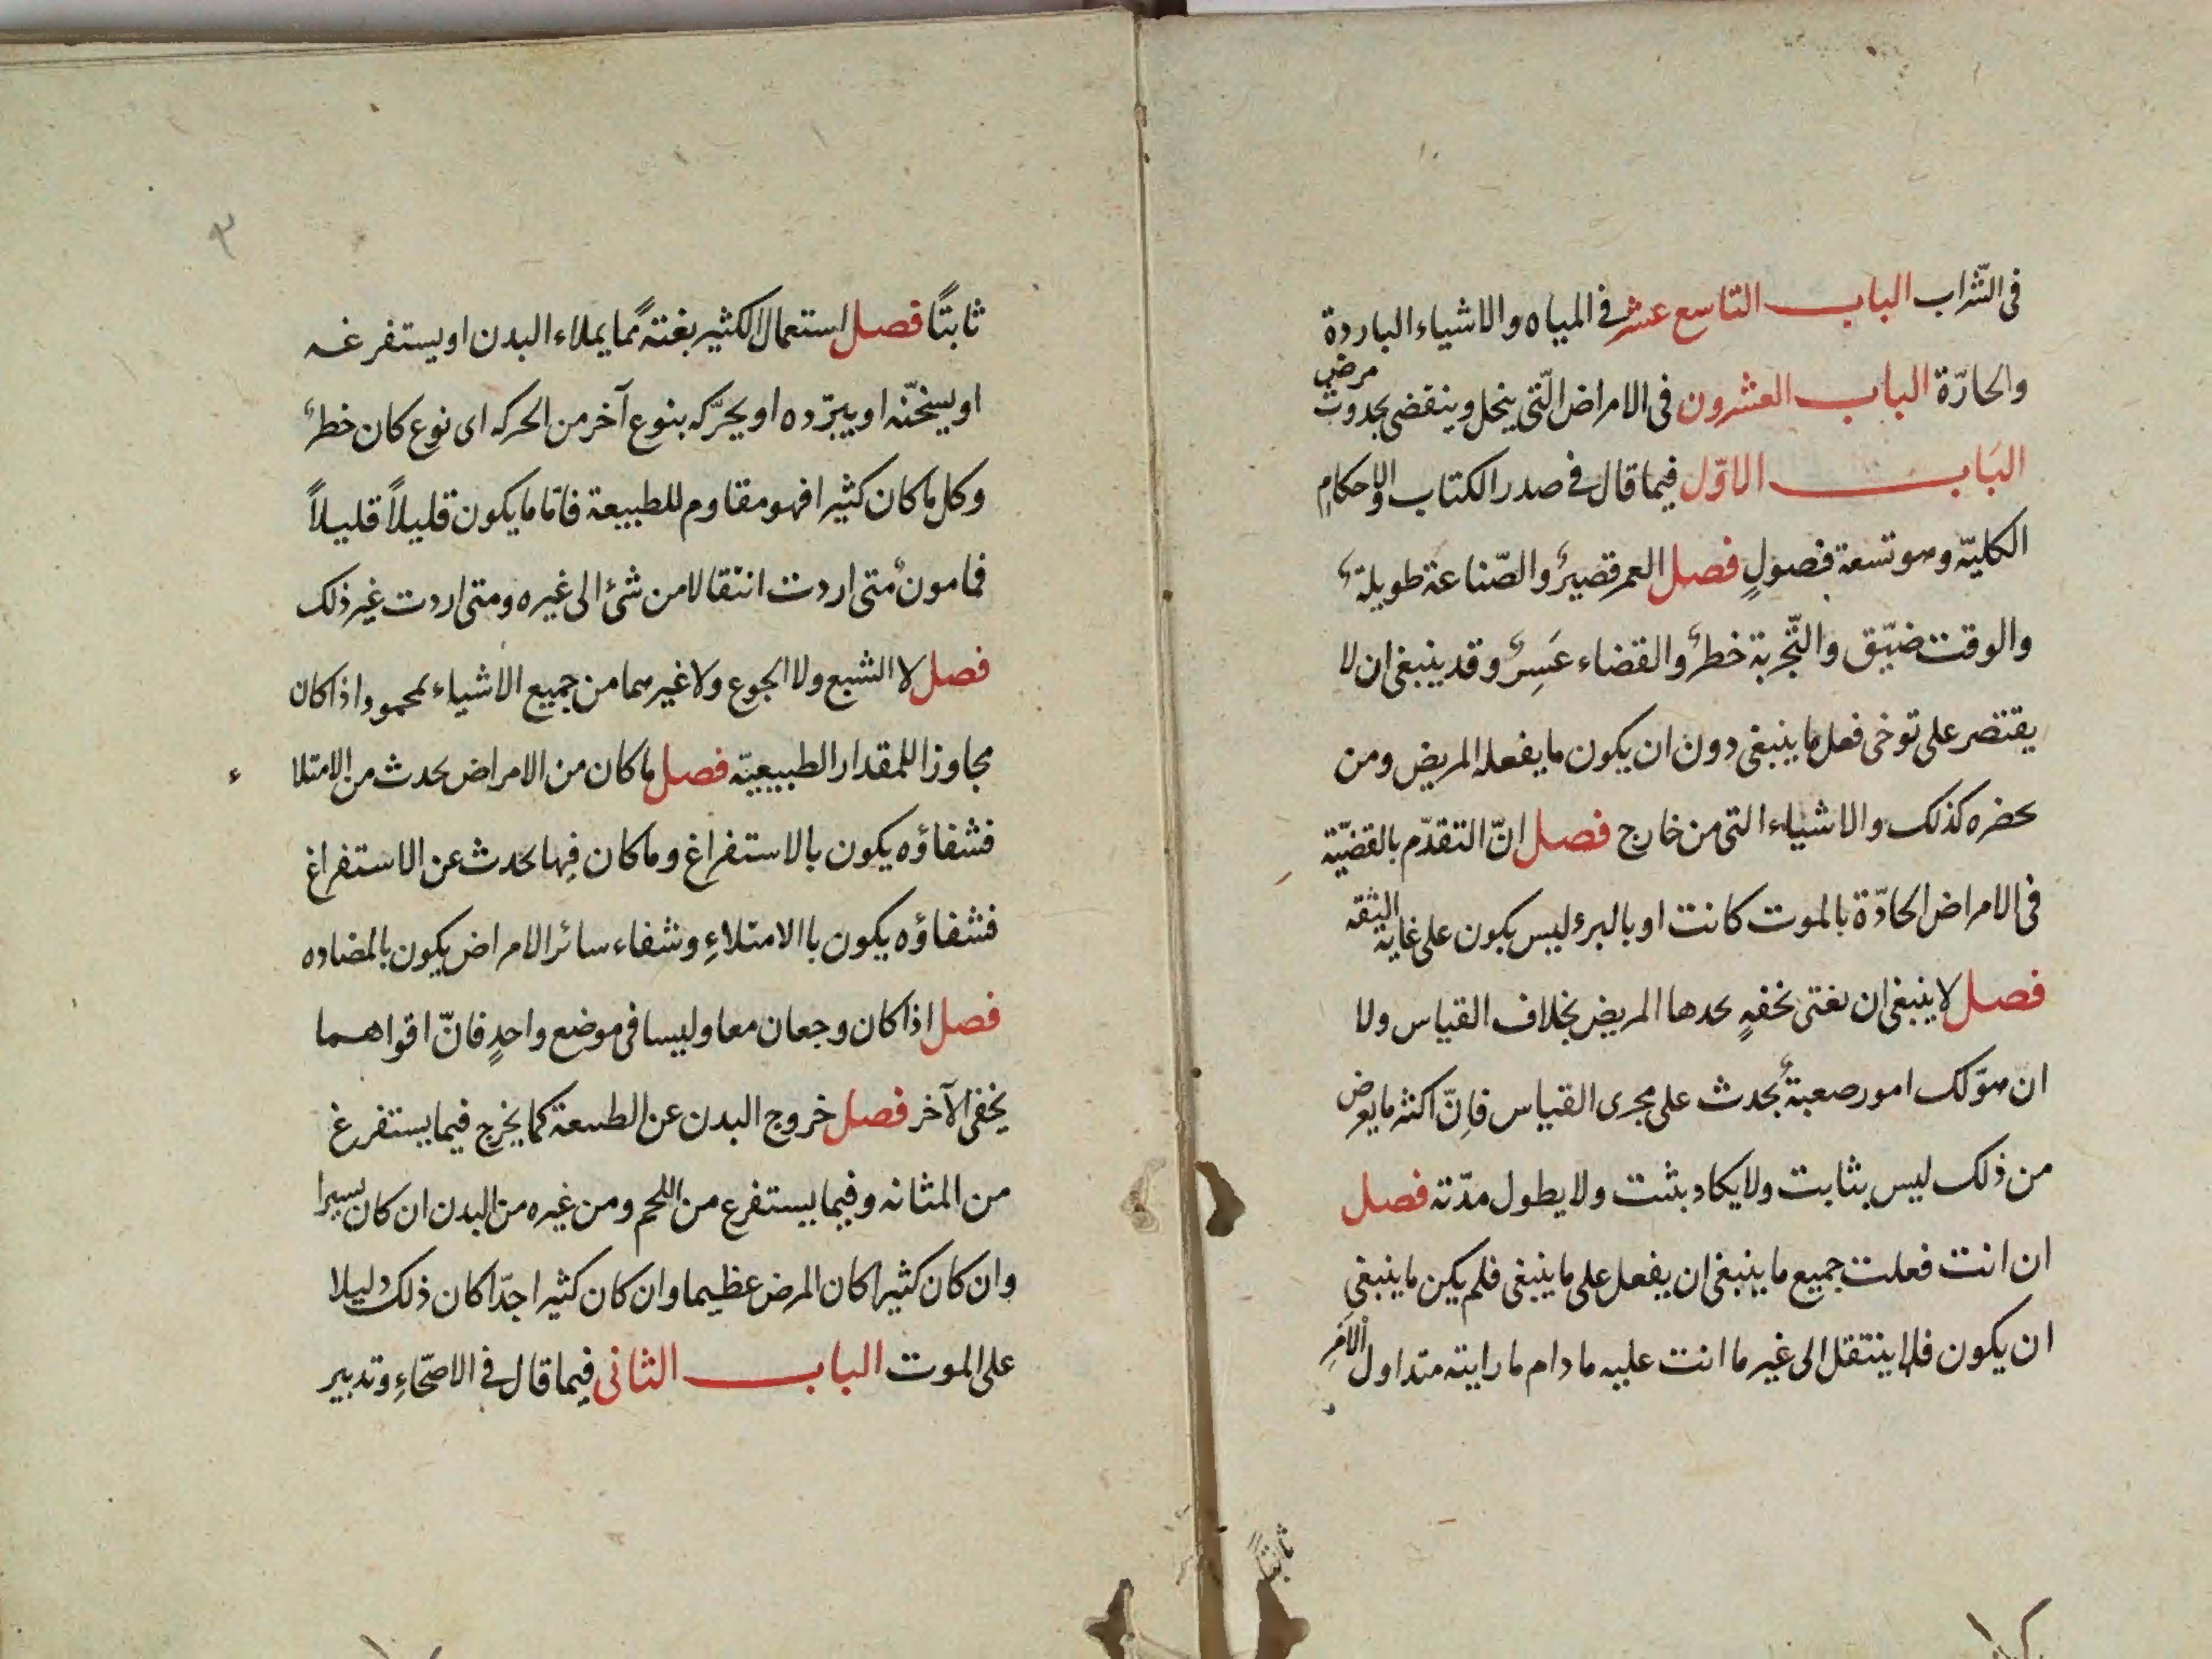 فى الشّراب الباب التاسع عشر فى المياه والاشياء الباردة
والحارّة الباب العشرون فى الامراض الّتى ينحل وينقضى بحدوث مرض
البَاب الاوّل فيما قال فى صدر الكتاب والاحكامِ
الكليّه وهو تسعة فصولٍ فصل العمر قصيرٌ والصّناعة طويلةٌ
والوقت ضيّق والتّجربة خطرٌ والقضاء عَسِرٌ وقد ينبغى ان لا
يقتصر على توخى فعل ما ينبغى دون ان يكون ما يفعله المريض ومن
يحضره كذلك والاشياء التى من خارج فصل انّ التقدّم بالقضيّة
فى الامراض الحادّة بالموت كانت او بالبرء ليس يكون على غاية الثقه
فصل لا ينبغى ان يغتى بخفهٍ يحدها المريض بخلاف القياس ولا
ان يهوّلك امور صعبةٌ يحدث على مجرى القياس فاِنّ اكثر ما يعرض
من ذلك ليس بثابت ولا يكاد يثبت ولا يطول مدّته فصل
ان انت فعلت جميع ما ينبغى ان يفعل على ما ينبغى فلم يكن ما ينبغى
ان يكون فلا ينتقل الى غير ما انت عليه ما دام ما رايته منذ اول الامرِ
ثابتاً
٣
ثابتًا فصل استعمال الكثير بغتةً مما يملاء البدن او يستفرغه
او يسخّنه او يبرّده او يحرّكه بنوع آخر من الحركه اى نوع كان خطرٌ
وكل ما كان كثيرا فهو مقاوم للطبيعة فامّا ما يكون قليلاً قليلاً
فمامونٌ متى اردت انتقالا من شئ الى غيره ومتى اردت غير ذلك
فصل لا الشبع ولا الجوع ولا غيرهما من جميع الاشياء بمحمود اذا كان
مجاوزا للمقدار الطبيعيّه فصل ما كان من الامراض يحدث من الامتلاء
فشفاؤه يكون بالاستفراغ وما كان فِيها يحدث عن الاستفراغ
فشفاؤه يكون باالامتلاءِ وشفاء سائر الامراض يكون بالمضاده
فصل اذا كان وجعان معا وليسا فى موضع واحدٍ فانّ اقواهما
يخفى الآخر فصل خروج البدن عن الطبيعة كما يخرج فيما يستفرغ
من المثانه وفيما يستفرع من اللحم ومن غيره من البدن ان كان يسيرا
وان كان كثيرا كان المرض عظيما وان كان كثيرا جدّا كان ذلك دليلا
على الموت الباب الثانى فيما قال فى الاصحّاءِ وتدبير